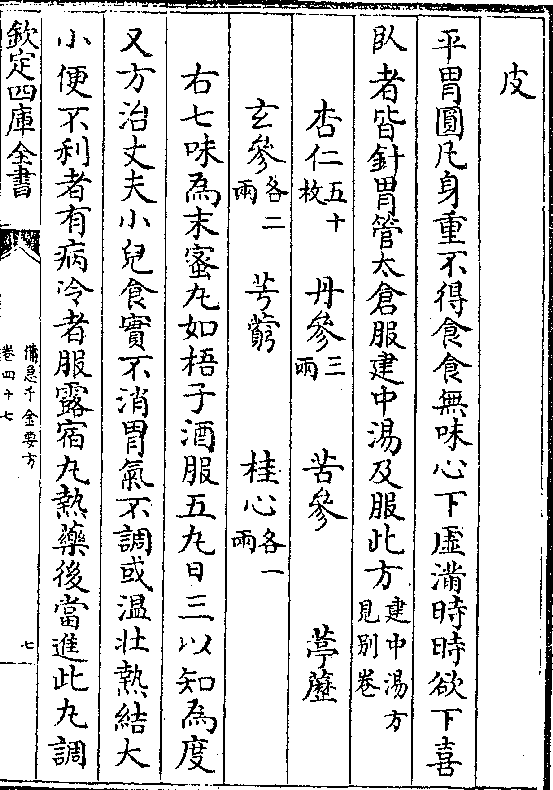 皮
平胃圓凡身重不得食食無味心下虛滿時時欲下喜
臥者皆針胃管太倉服建中湯及服此方建中湯方見別卷
杏仁五十枚 丹參三兩 苦參 葶藶
玄參各二兩 芎藭 桂心各一兩
右七味為末蜜丸如梧子酒服五丸日三以知為度
又方治丈夫小兒食實不消胃氣不調或溫壯熱結大
小便不利者有病冷者服露宿丸熱藥後當進此丸調
欽定四庫全書
備急千金要方
卷四十七
七